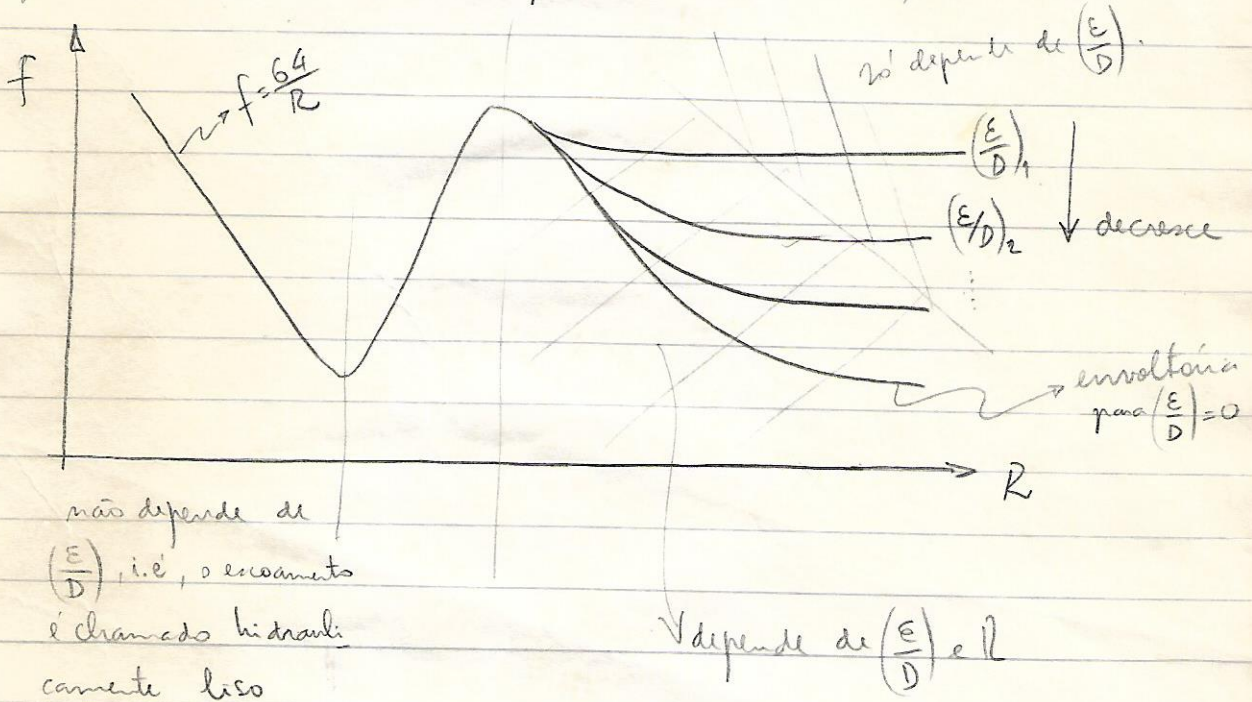 f
f = 64/R
só depende de (ε/D).
(ε/D)₁
(ε/D)₂
decresce
envoltória
para (ε/D) = 0
R
não depende de
(ε/D), i.é, o escoamento
é chamado hidrauli
camente liso
depende de (ε/D) e R